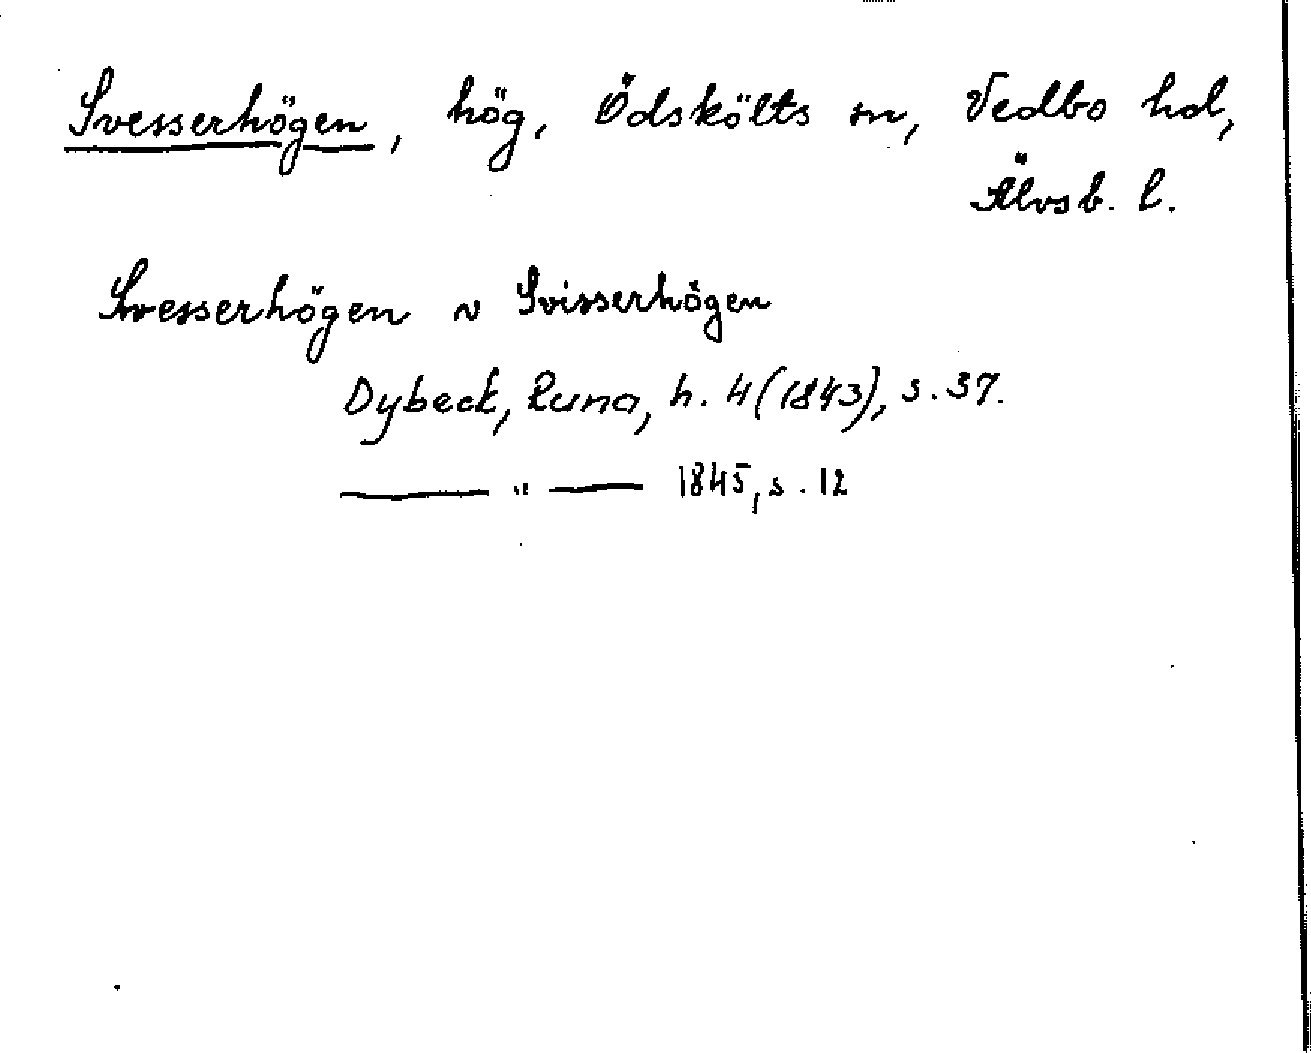 Svesserhögen, hög, Ödskölts sn, Vedbo hd,
Älvsb. l.
Svesserhögen ~ Svisserhögen
Dybeck, Runa, h. 4 (1843), s. 37.
——— " ——— 1845, s. 12